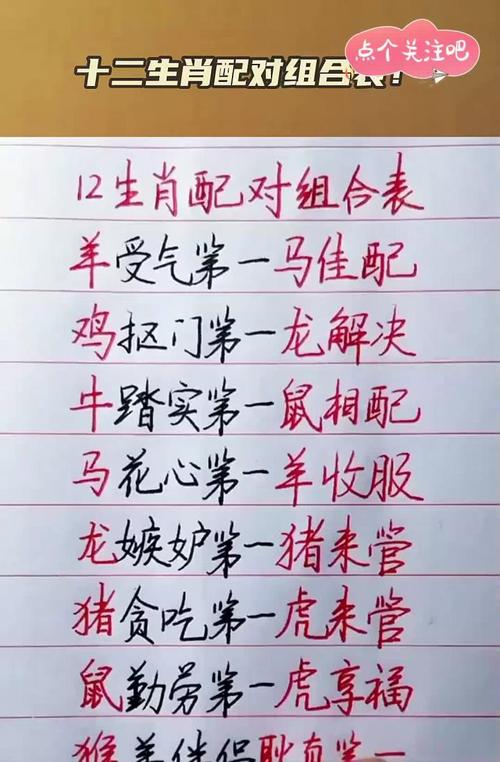 点个关注吧
十二生肖配对组合表!
12生肖配对组合表
羊受气第一马佳配
鸡抠门第一龙解决
牛踏实第一鼠相配
马花心第一羊收服
龙嫉妒第一猪来管
猪贪吃第一虎来管
鼠勤劳第一虎享福
猴